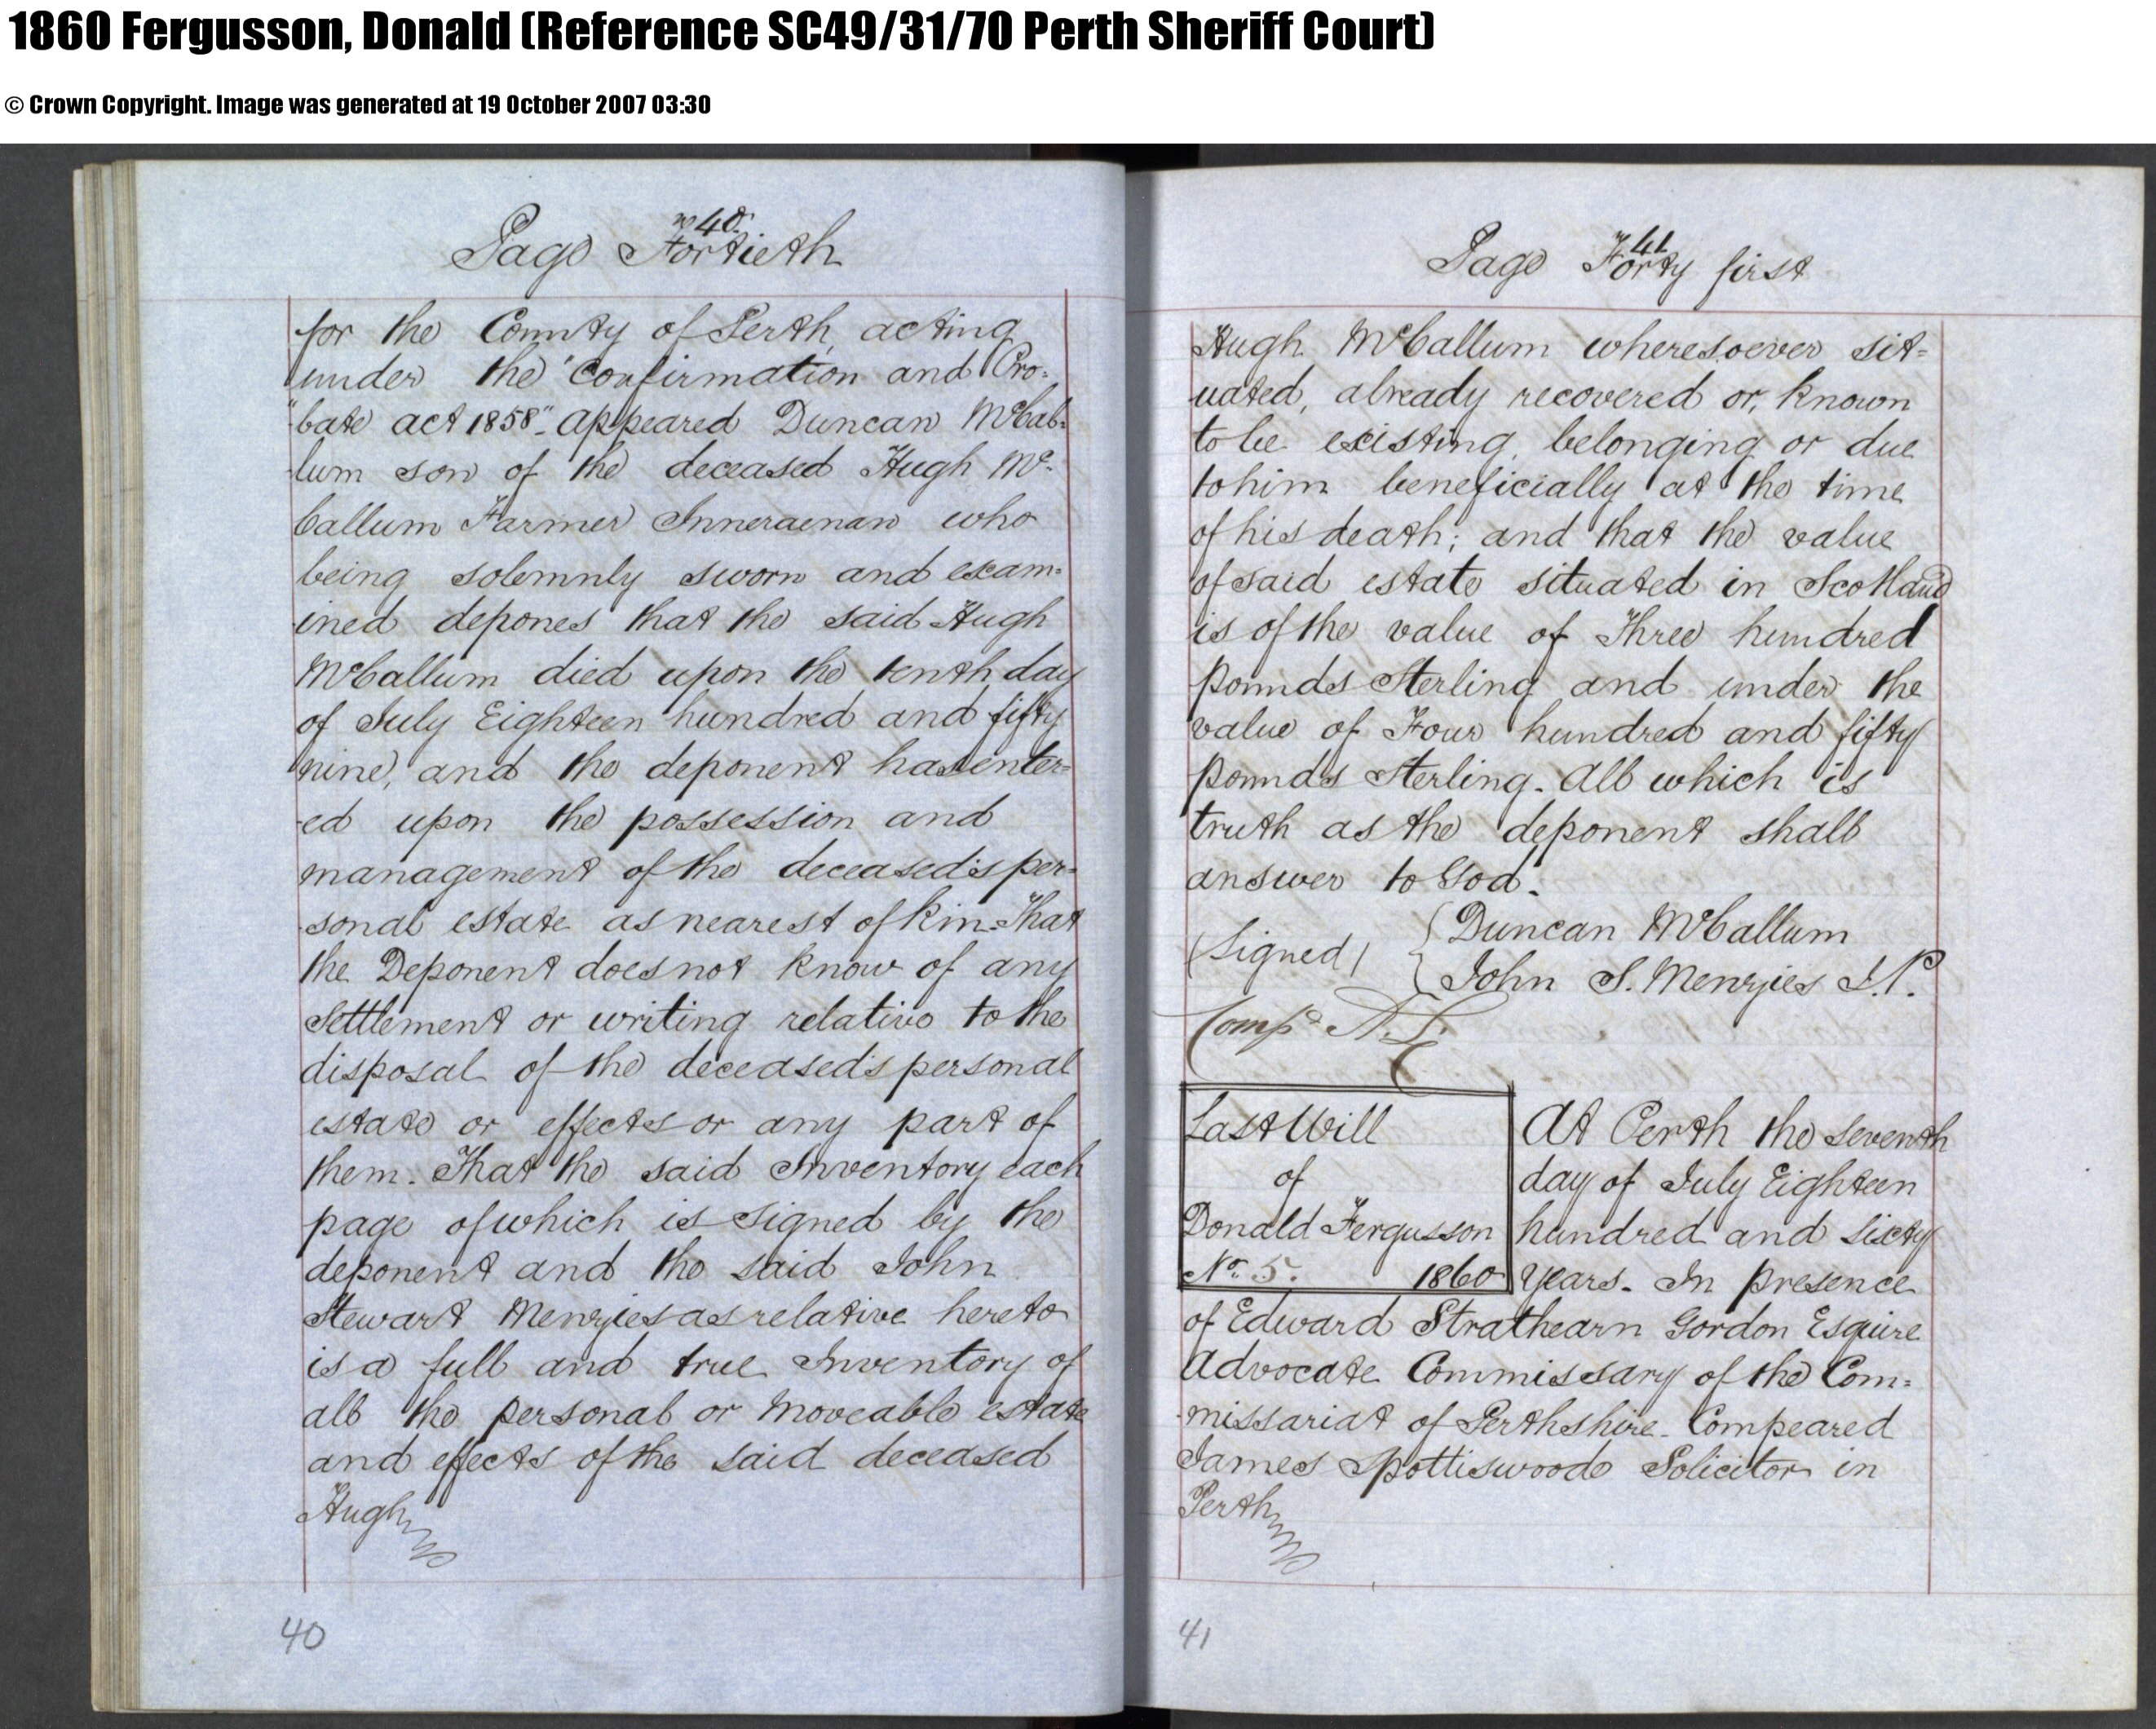 1860 Fergusson, Donald (Reference SC49/31/70 Perth Sheriff Court)
© Crown Copyright. Image was generated at 19 October 2007 03:30
40
Page Fortieth
for the County of Perth, acting
under the "Confirmation and Pro=
"bate act 1858". appeared Duncan McCal=
lum son of the deceased Hugh Mc=
Callum Farmer Inneraenan who
being solemnly sworn and exam=
ined depones that the said Hugh
McCallum died upon the tenth day
of July Eighteen hundred and fifty
nine, and the deponent has enter=
ed upon the possession and
management of the deceased's per=
sonal estate as nearest of kin. That
the Deponent does not know of any
Settlement or writing relative to the
disposal of the deceased's personal
estate or effects or any part of
them. That the said Inventory each
page of which is signed by the
deponent and the said John
Stewart Menzies as relative hereto
is a full and true Inventory of
all the personal or moveable estate
and effects of the said deceased
Hugh
40
41
Page Forty first
Hugh McCallum wheresoever sit=
uated, already recovered or, known
to be existing, belonging or due
to him beneficially at the time
of his death; and that the value
of said estate situated in Scotland
is of the value of Three hundred
pounds Sterling and under the
value of Four hundred and fifty
pounds Sterling. All which is
truth as the deponent shall
answer to God.
(Signed) { Duncan McCallum
John S. Menzies J.P.
Compd A.L.
Last Will
of
Donald Fergusson
No. 5. 1860
At Perth the seventh
day of July Eighteen
hundred and sixty
years. In presence
of Edward Strathearn Gordon Esquire
Advocate Commissary of the Com=
missariat of Perthshire. Compeared
James Spottiswoode Solicitor in
Perth
41